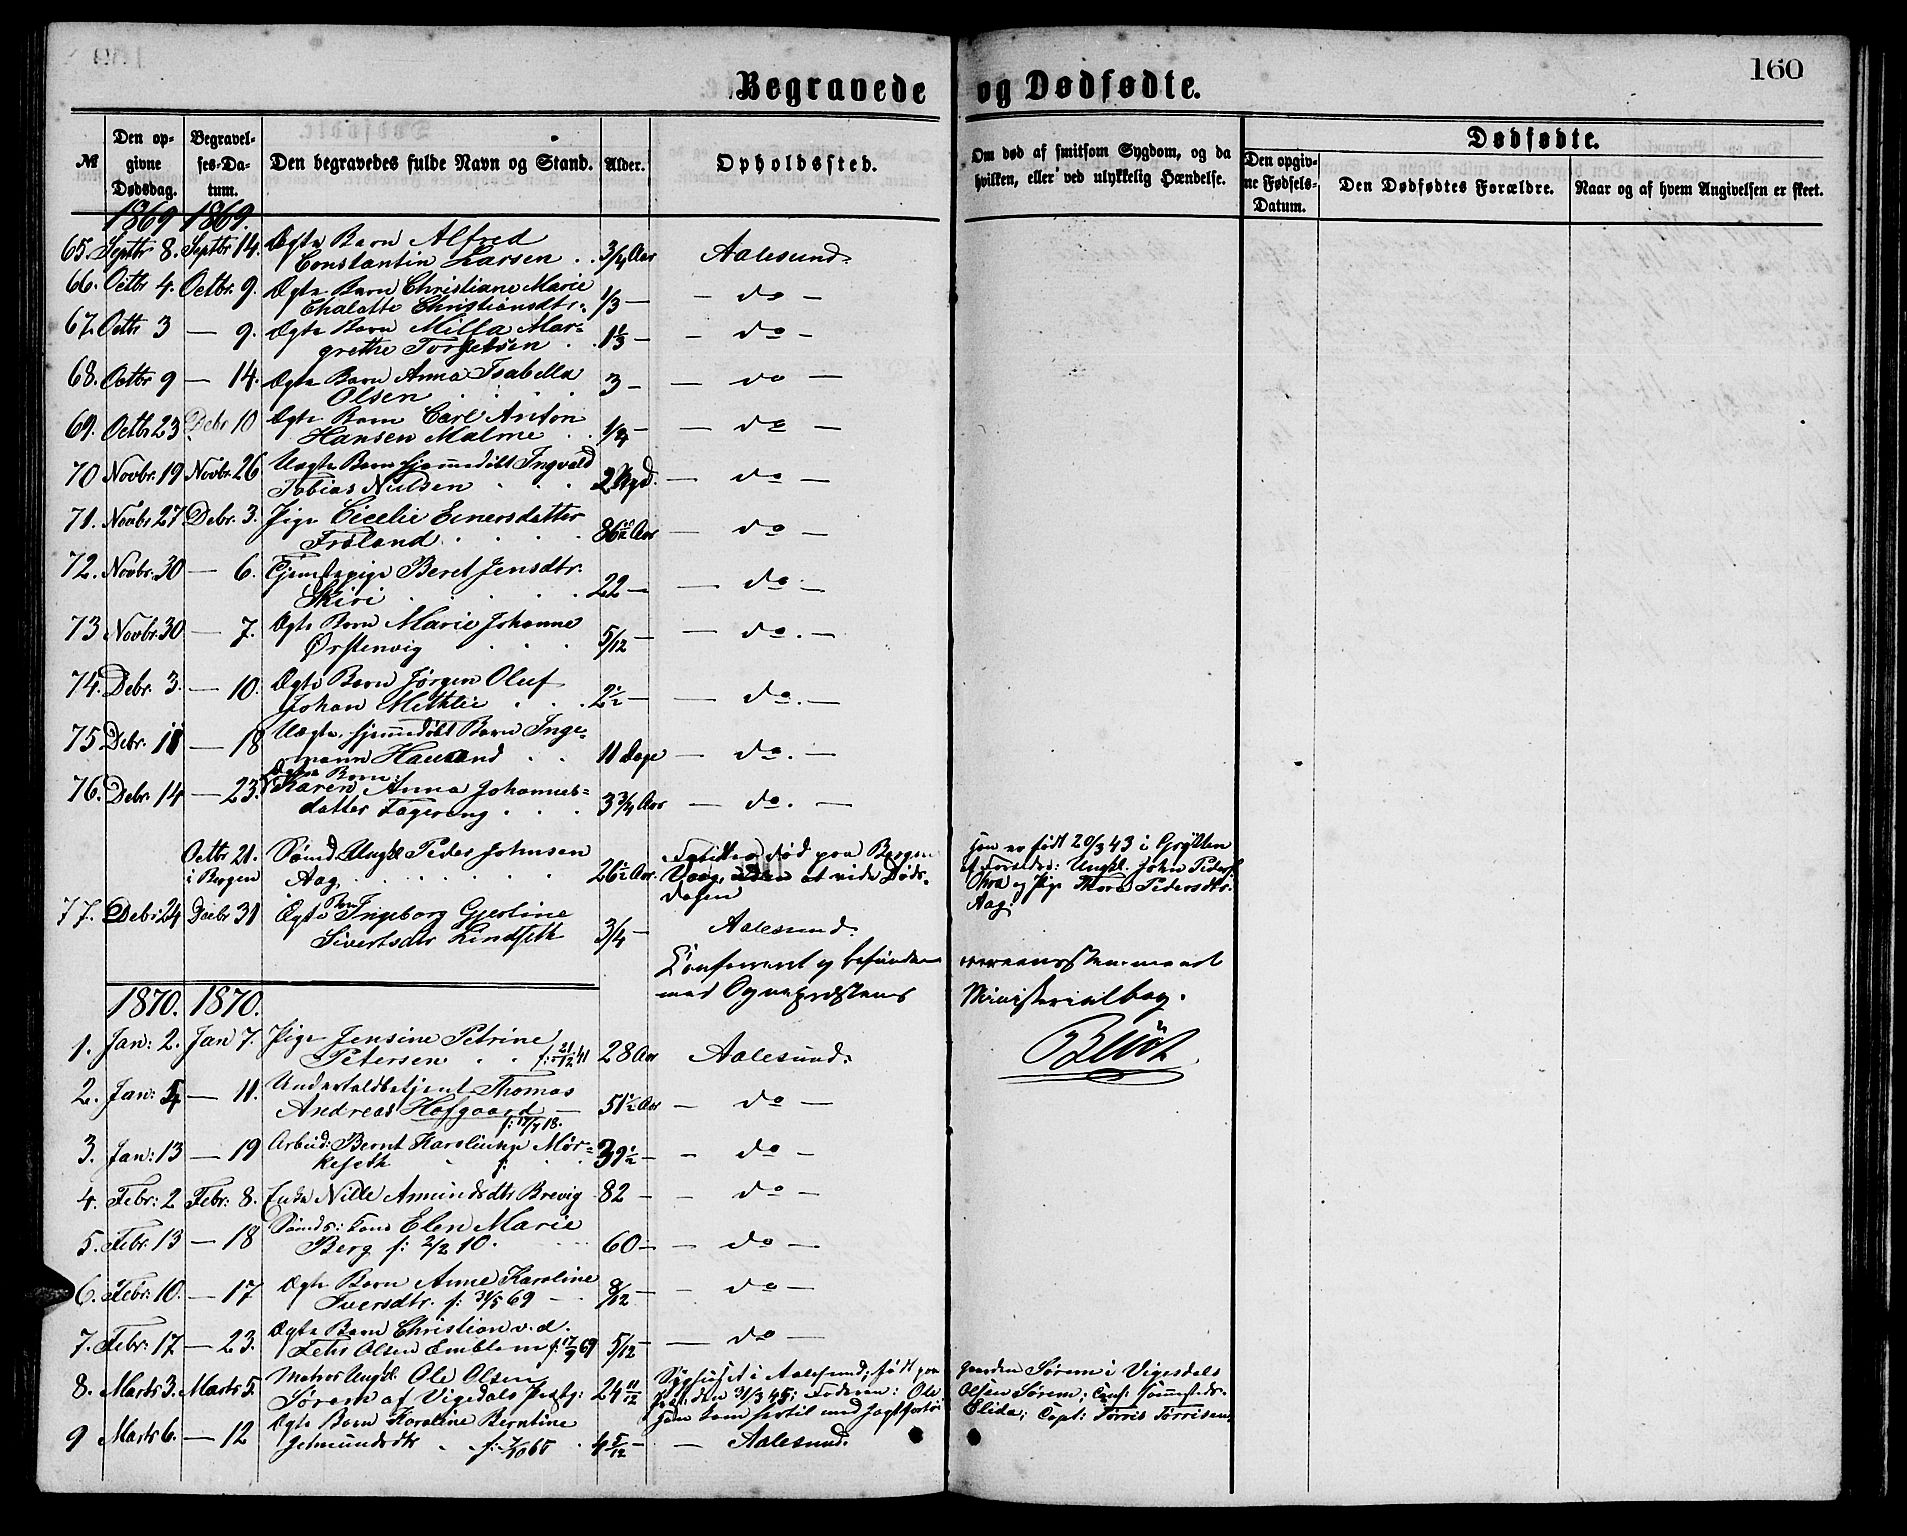 160
Begravede og Dødfødte.
№
Den opgivne Dødsdag.
Begravelses-Datum.
Den begravedes fulde Navn og Stand.
Alder.
Opholdssted.
Om død af smitsom Sygdom, og da hvilken, eller ved ulykkelig Hændelse.
Dødfødte.
Den opgivne Fødsels-Datum.
Den Dødfødtes Forældre.
Naar og af hvem Angivelsen er skeet.
1869 1869.
65. Septbr 8. Septbr 14. Ægte Barn Alfred
Constantin Larsen . . 3/4 Aar Aalesund.
66. Octbr 4. Octbr. 9. Ægte Barn Christiane Marie
Chalotte Christiansdtr. 1/3 — — do —
67. Octbr 3 — 9. Ægte Barn Milla Mar-
grethe Torgersen . 1 1/3 — — do —
68. Octbr 9 — 14. Ægte Barn Anna Isabella
Olsen . . . . 3 — — do —
69. Octbr 23 Debr 10 Ægte Barn Carl Anton
Hansen Malme . . — — do —
70 Novbr. 19 Novbr. 26 Uægte Barn hjemmedøbt Ingvald
Tobias Nielsen . . . 2 Ugd. — do —
71. Novbr 27 Debr. 3. Pige Cicelie Einersdatter
Frøland . . . . 86 Aar — do —
72. Novbr. 30 — 6. Tjenstepige Beret Jensdtr.
Skiri . . . . . 22 — — do —
73 Novbr. 30 — 7. Ægte Barn Marie Johanne
Ørstenvig . . . 5/12 — — do. —
74. Debr. 3. — 10. Ægte Barn Jørgen Oluf
Johan Methlie . . . 2 1/2 — — do. —
75 Debr. 11 — 18 Uægte hjemmedøbt Barn Inge-
mann Hauand . . 11 Dage — do. —
76. Debr. 14 — 23. Ægte Barn:
Karen Anna Johannes-
datter Fagervng . . . 3 3/4 Aar — do. —
Octbr 21. Sømd Ungkl Peder Johnsen
i Bergen Aag . . . . . . 26 1/2 Aar. død paa Bergen
Vaag, uden at vide Døds-
dagen
han er født 20/3 43 i Grytten
af Forældre: Ungkl. John Peders.
og Pige Thora Pedersdtr.
Aag.
77. Debr: 24 Debr 31 Ægte Barn Ingeborg Gjertine
Sivertsdtr Lindseth 3/4 — Aalesund.
Confereret og befunden overensstemmende
med Sognepræstens Ministerialbog.
1870. 1870.
1. Jan: 2. Jan 7. Pige Jensine Petrine
Petersen . . f: 21/12 41 28 Aar Aalesund.
2. Jan: 4 — 11. Undertoldbetjent Thomas
Andreas Hofgaard — 51 1/2 Aar — do —
f: 17/7 18.
3. Jan: 13 — 19 Arbeid: Bernt Karolius Mør-
keseth . f: . . 39 1/2 — — do —
4. Febr: 2 Febr: 8. Enke Nille Amundsdtr Brevig 82 — — do —
5. Febr. 13 — 18 Sømds: kone Elen Marie
Berg f: 2/2 10. 60 — — do —
6. Febr: 10. — 17 Ægte Barn Anne Karoline
Iversdtr. f: 31/5 69 — 8/12 — do —
7. Febr: 17 — 23. Ægte Barn Christian v. d.
Fehr Olsen Emblem f: 17/9 69 5/12 — — do —
8. Marts 3. Marts 5. Matros Ungkl. Ole Olsen
Sørem af Vigedals Præstg: 24 11/12 Sygehuset i Aalesund; født paa gaarden Sørem i Vigesdals
Præstg. den 31/3 45; Faderen: Ole Olsen Sørem;
han kom hertil med Jagtfartøi Elida; Capt: Torris Torrisen.
9 Marts 6. — 12 Ægte Barn Karoline Berntine
. . f: 7/10 65 . 4 5/12 — — Aalesund.